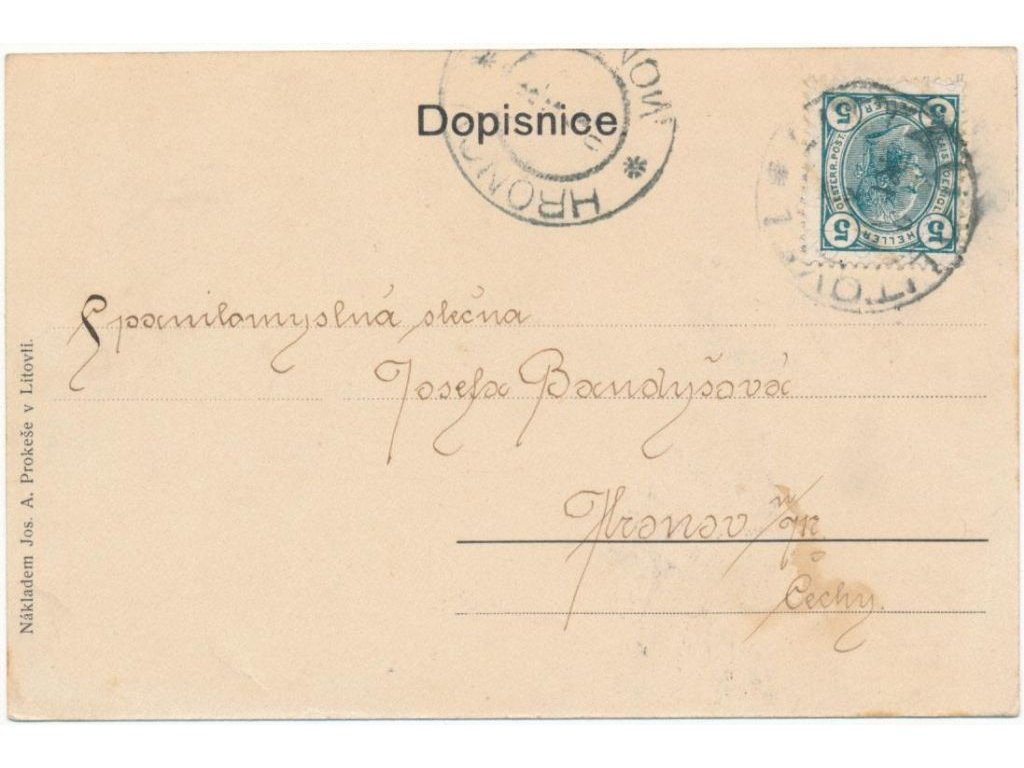 Dopisnice
HRONOV
HRONOW
LITOVEL
5 5
OESTERR. POST
5 HELLER 5
Spanilomyslná slečna
Josefa Bandyšová
Hronov n/M
Čechy.
Nákladem Jos. A. Prokeše v Litovli.